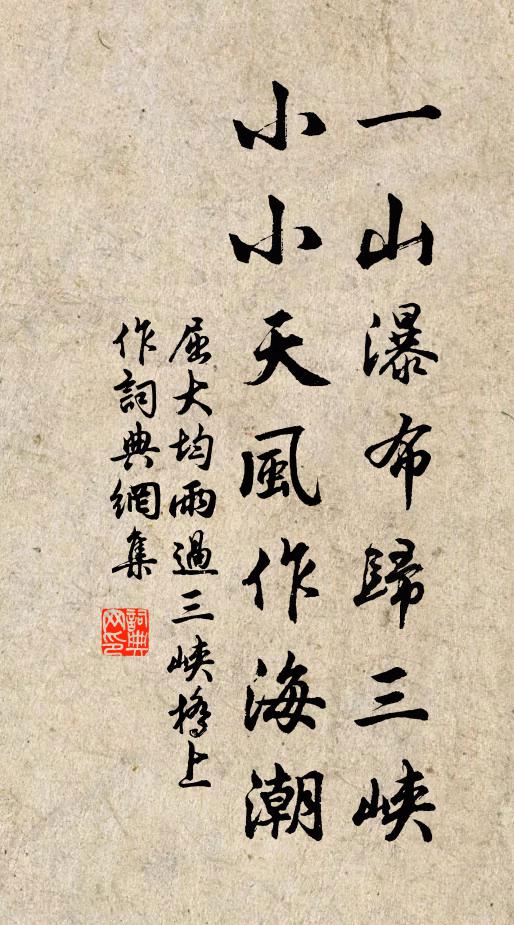 一山瀑布歸三峽
小小天風作海潮
屈大均雨過三峽橋上
作詞典網集
詞典
网印